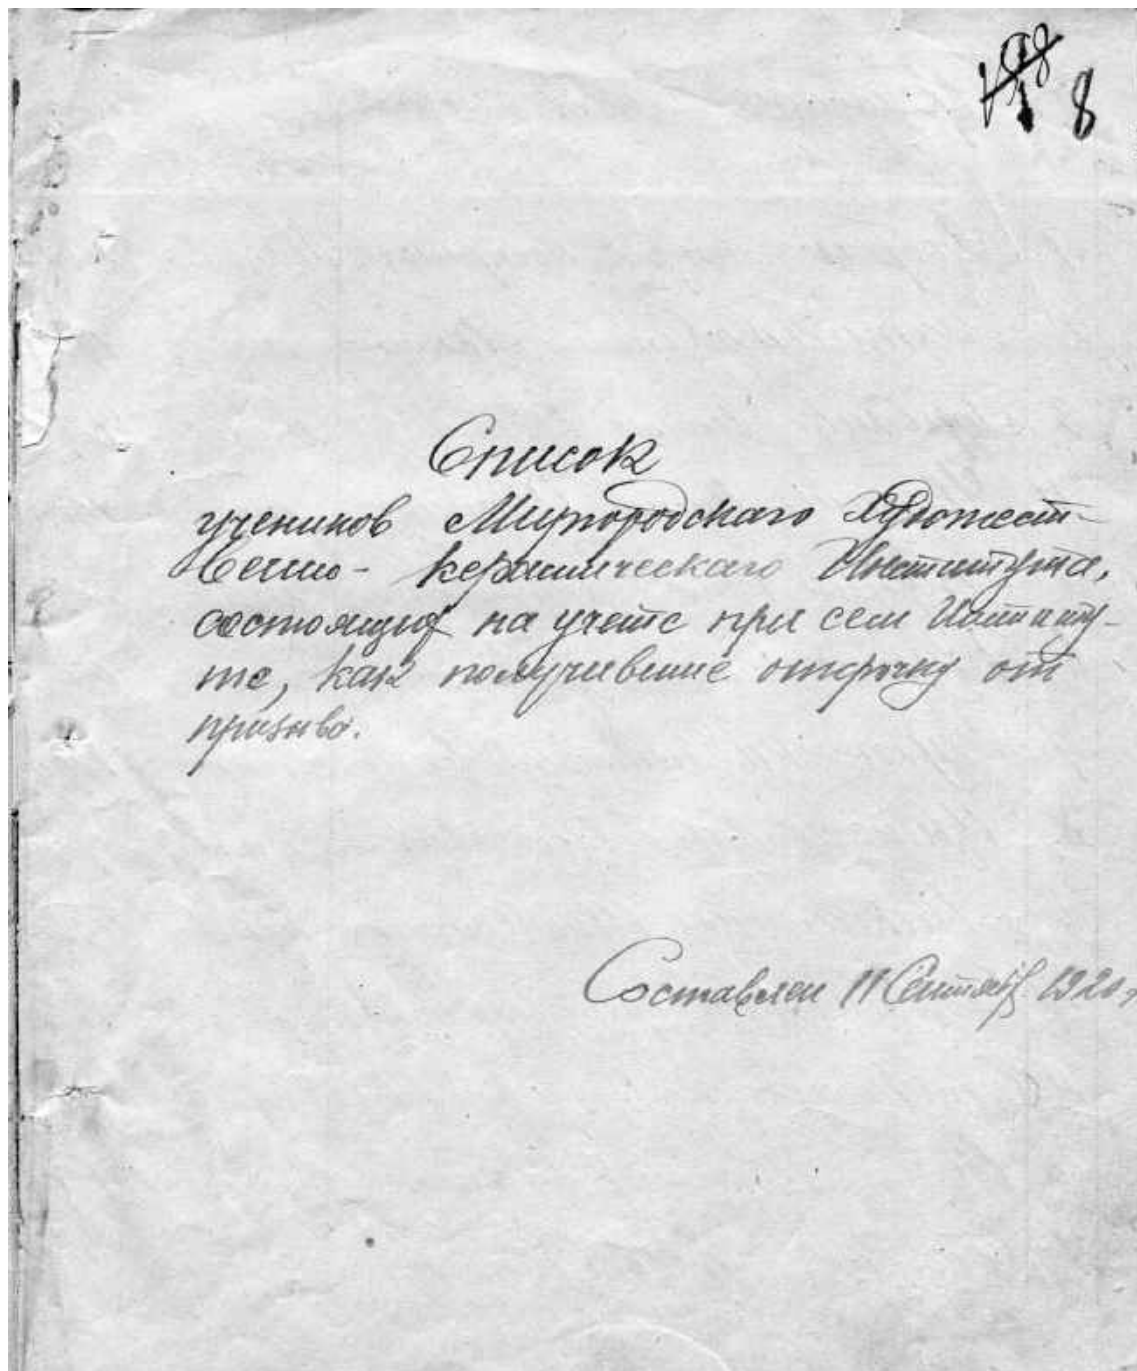 8
Список
учеников Миргородскаго Художест-
венно- керамическаго Института,
состоящих на учете при сем Институ-
те, как получившие отсрочку от
призыва.
Составлен 11 Сентябр. 1920 г